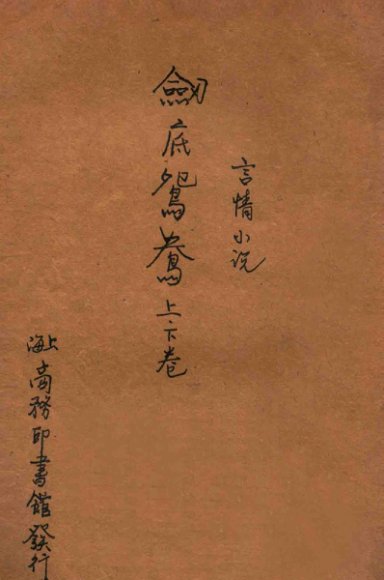 言情小说
劔底鴛鴦上下卷
上海商務印書館發行